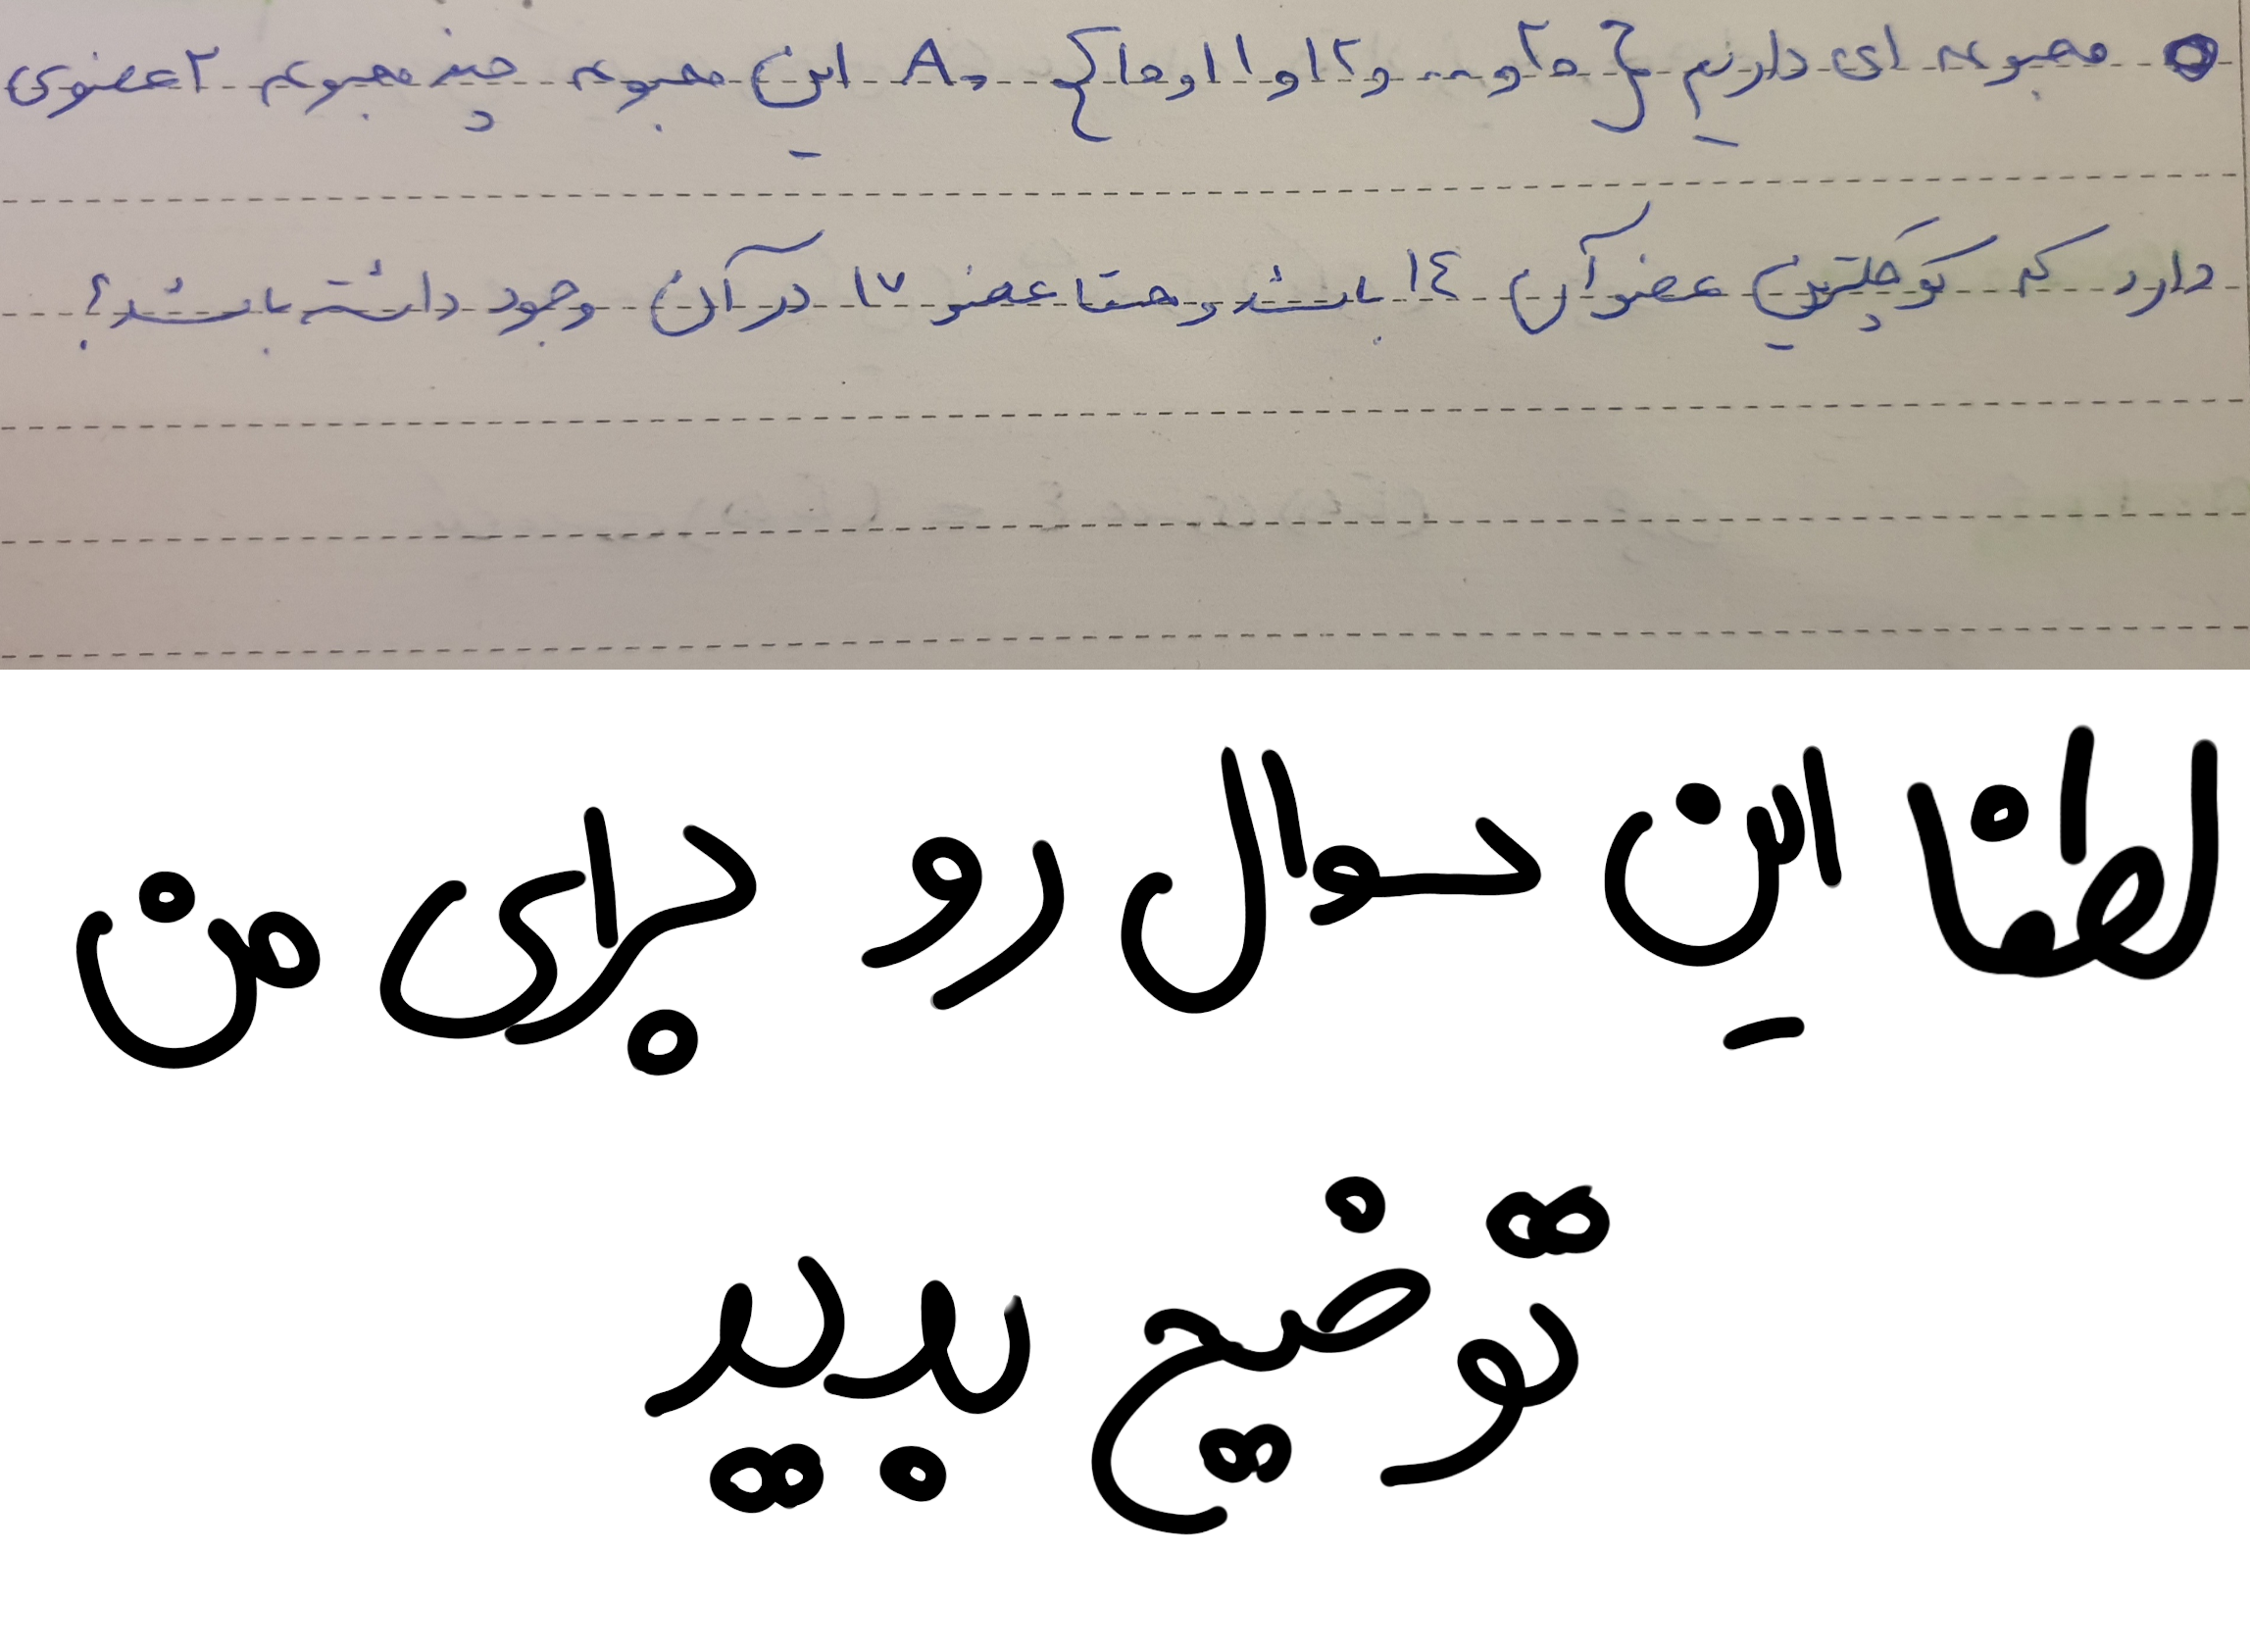 مجموعه ای داریم A= {۱۰و۱۱و۱۲و...و۲۰} این مجموعه چند مجموعه ۲ عضوی
دارد که کوچکترین عضو آن ۱٤ باشد و حتما عضو ۱۷ در آن وجود داشته باشد؟
لطفا این سوال رو برای من
توضیح بدید